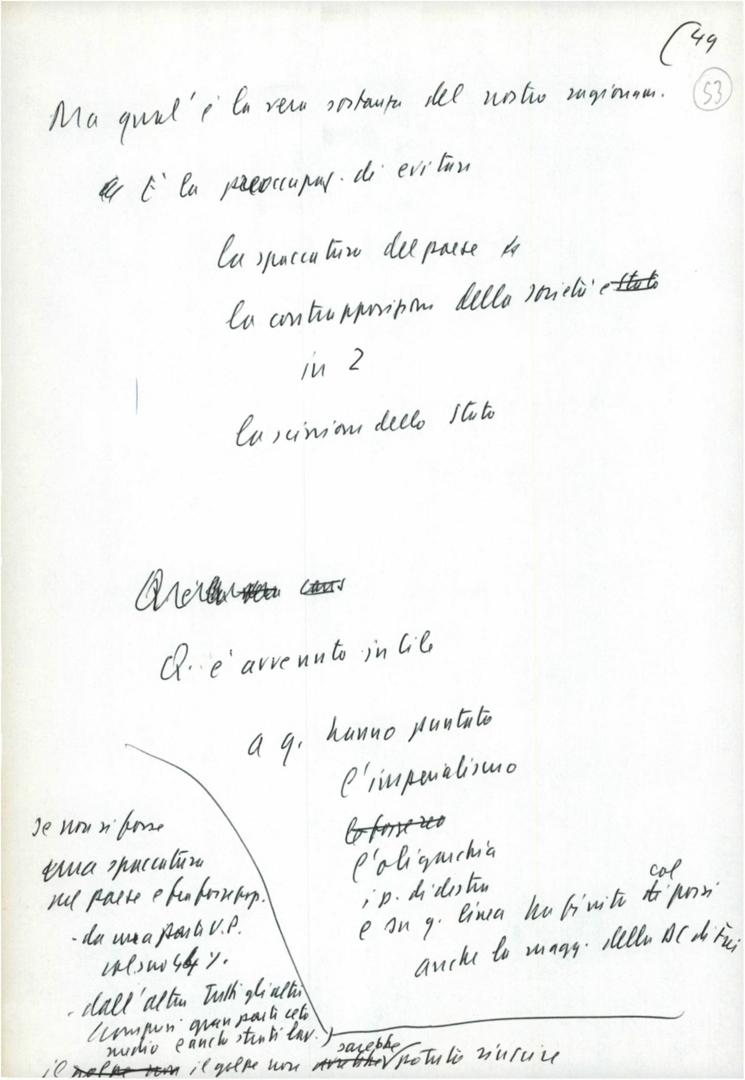 (49
53
Ma qual'è la vera sostanza del nostro ragionam.
È la preoccupaz. di evitare
la spaccatura del paese
la contrapposizione della società e stato
in 2
la scissione dello Stato
Q. è avvenuto in Cile
a q. hanno puntato
l'imperialismo
l'oligarchia
i p. di destra
e su q. linea ha finito col porsi
anche la magg. della DC di Frei
se non si fosse
una spaccatura
nel paese e fra forze pop.
- da una parte U.P.
col suo 44%.
- dall'altra tutti gli altri
(compresi gran parte ceto
medio e anche strati lav.)
il golpe non il golpe non avrebbe sarebbe potuto riuscire